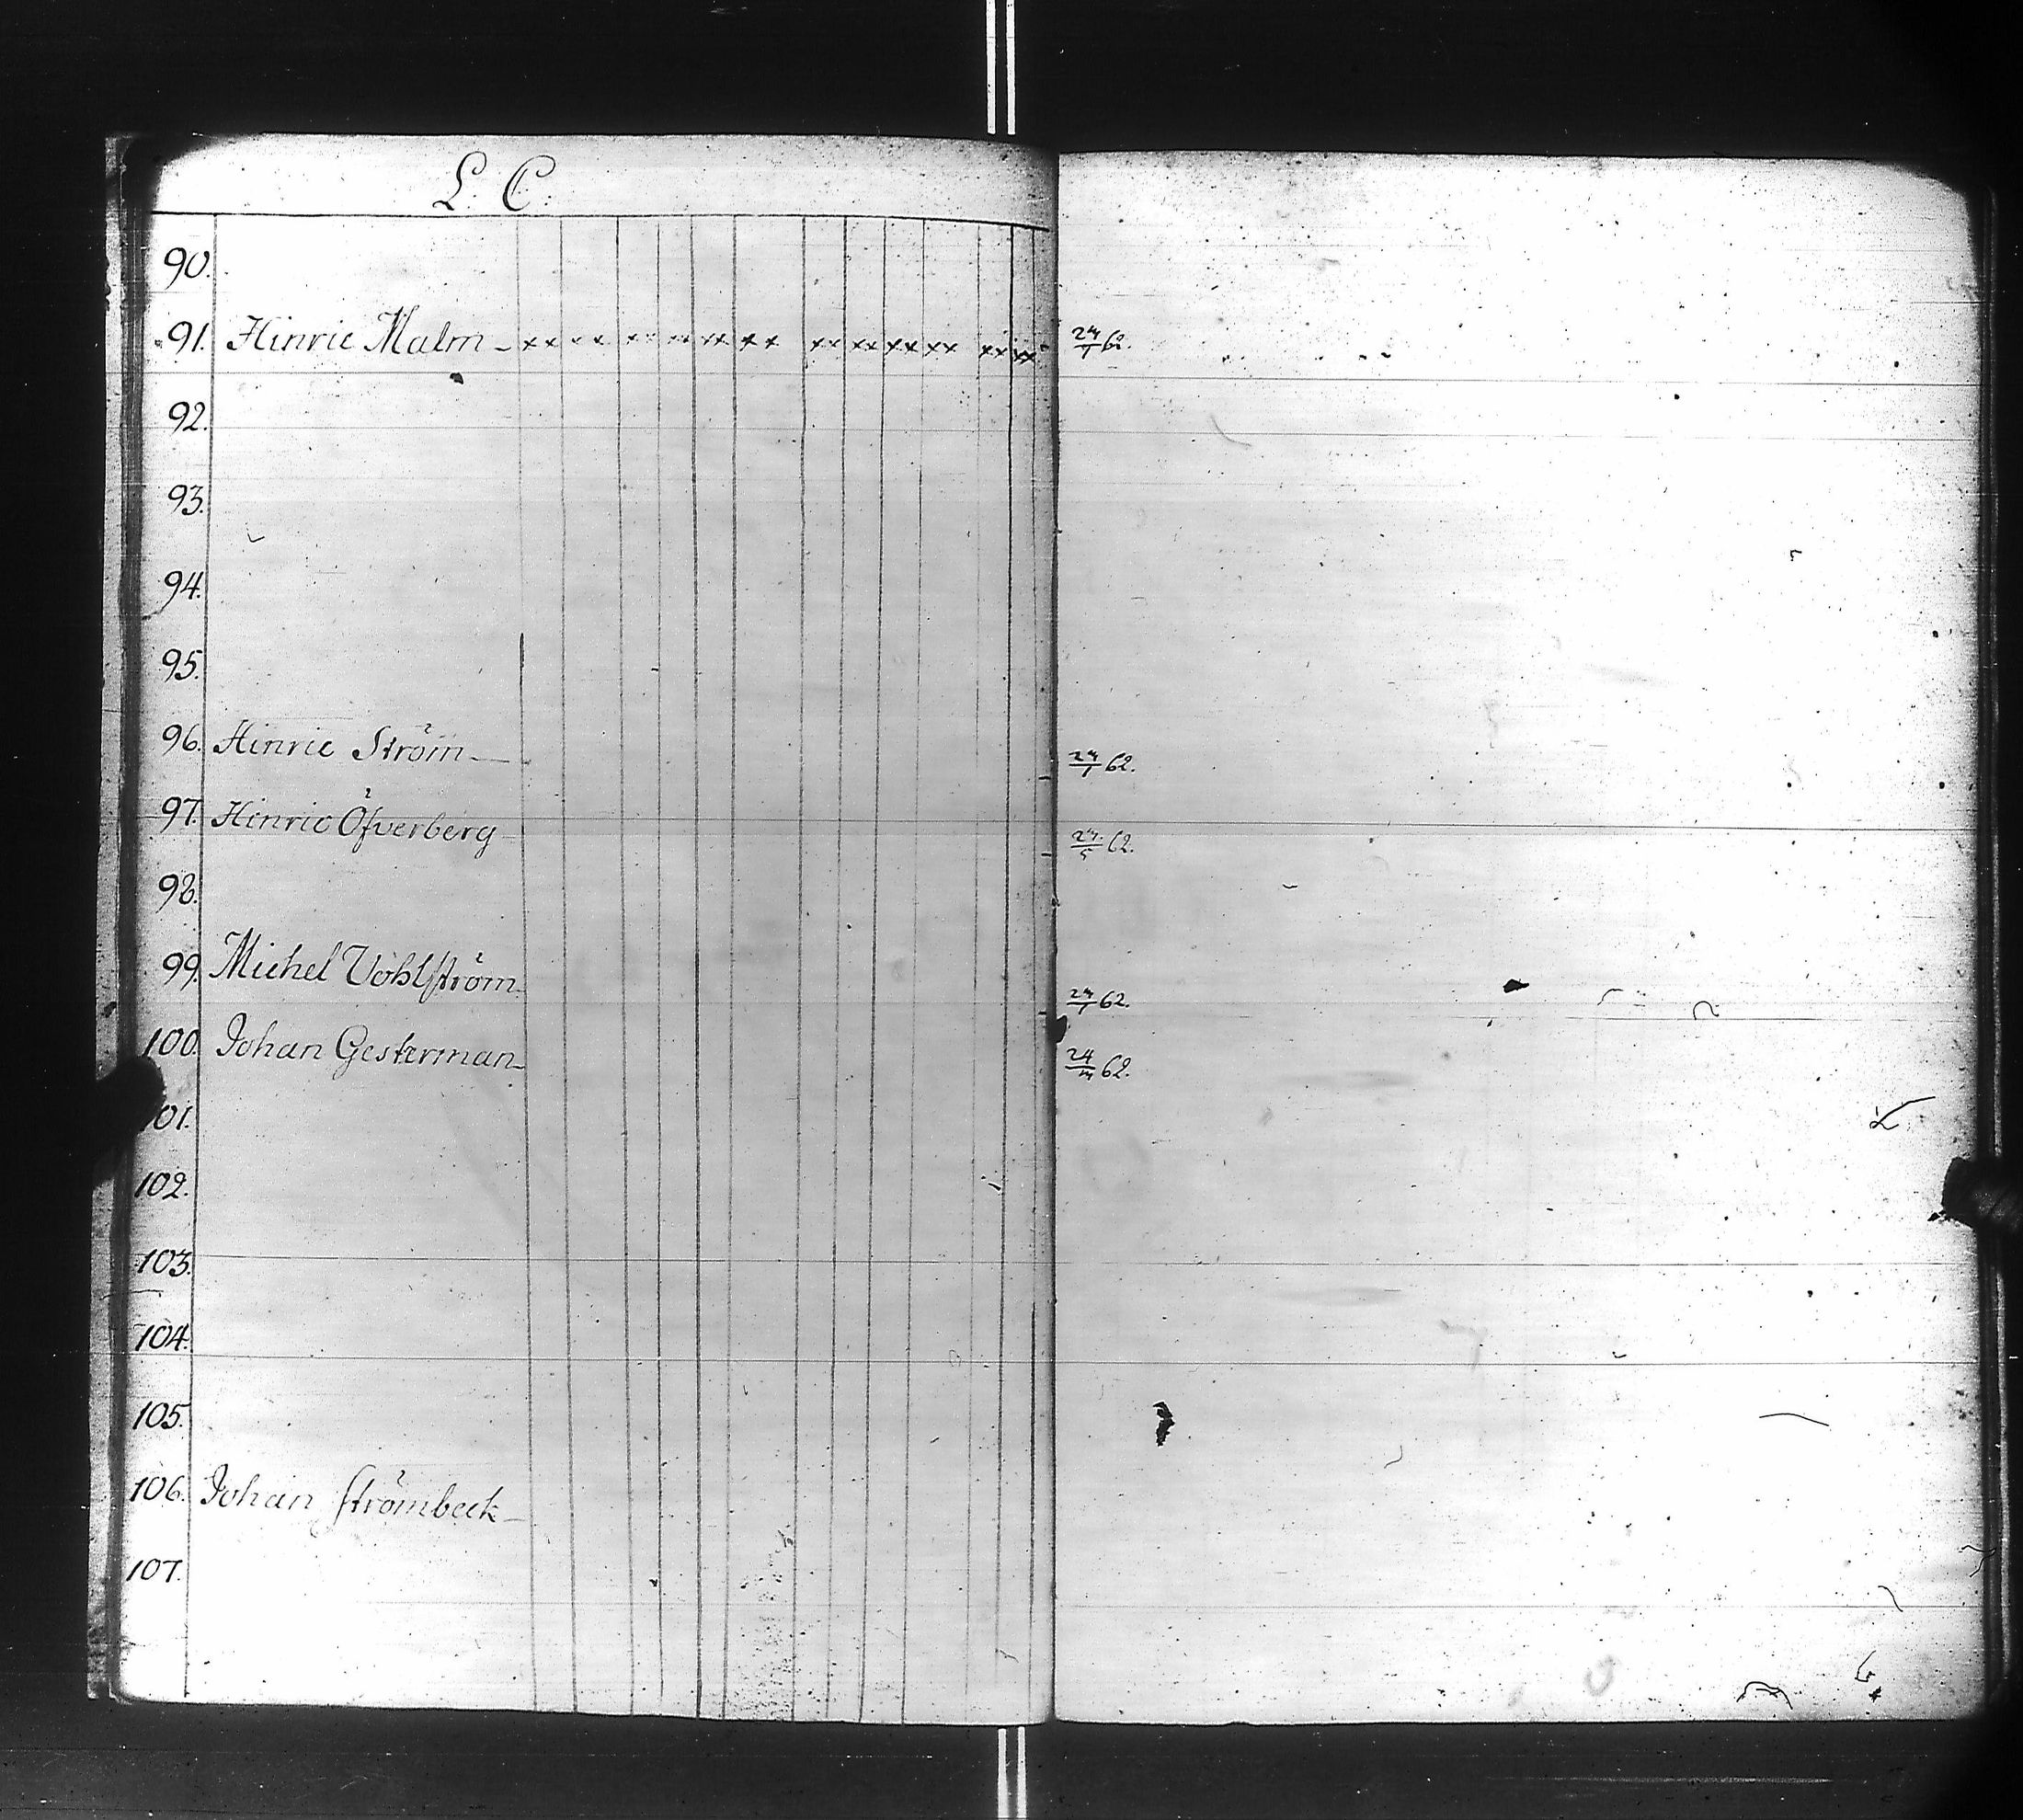 L. C.
90.
91. Hinric Malm - xx xx xx xx xx xx xx xx xx xx xx xx 62.
92.
93.
94.
95.
96. Hinric Ström 62.
97. Hinric Öfverberg 62.
98.
99. Michel Vöhlström 62.
100. Johan Gesterman 62.
101.
102.
103.
104.
105.
106. Johan Strömbeck
107.